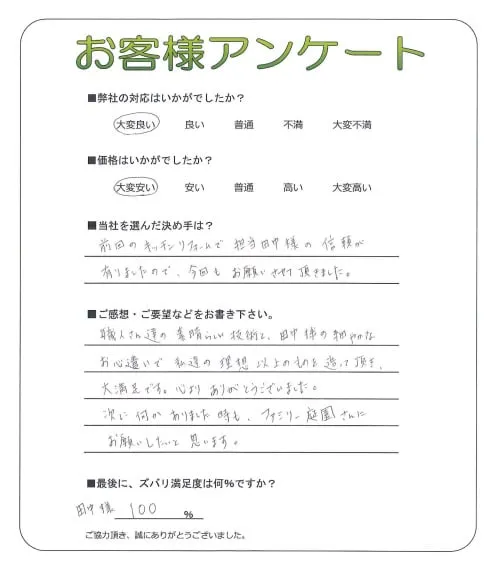 お客様アンケート
■弊社の対応はいかがでしたか？
大変良い 良い 普通 不満 大変不満
■価格はいかがでしたか？
大変安い 安い 普通 高い 大変高い
■当社を選んだ決め手は？
前回のキッチンリフォームで担当田中様の信頼が
有りましたので、今回もお願いさせて頂きました。
■ご感想・ご要望などをお書き下さい。
職人さん達の素晴らしい技術と、田中様の細やかな
お心遣いで私達の理想以上のものを造って頂き、
大満足です。心よりありがとうございました。
次に何かありました時も、ファミリー庭園さんに
お願いしたいと思います。
■最後に、ズバリ満足度は何％ですか？
田中様 100 ％
ご協力頂き、誠にありがとうございました。